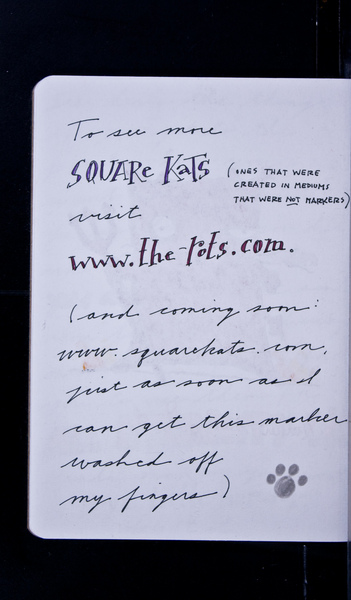 To see more
SQUARe KaTS (ONES THAT WERE
CREATED IN MEDIUMS
THAT WERE NOT MARKERS)
visit
www.the-rots.com.
(and coming soon:
www.squarekats.com,
just as soon as I
can get this marker
washed off
my fingers)